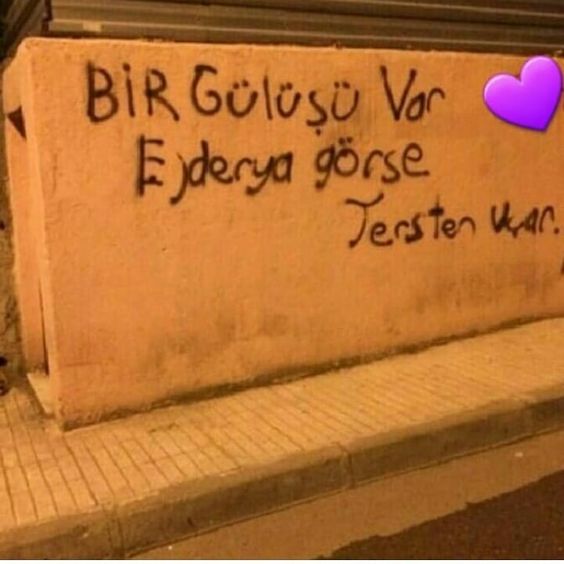 BİR Gülüşü Var
Ejderya görse
Tersten Uçar.